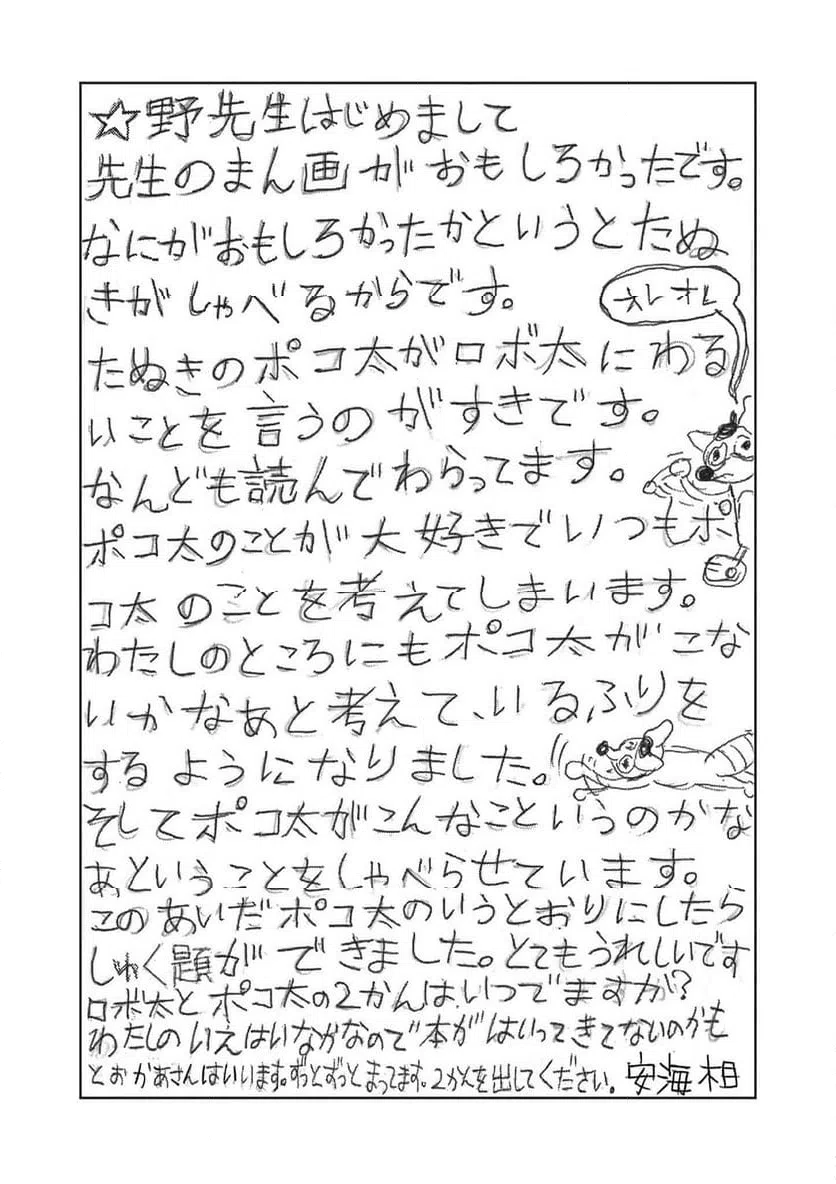 ☆野先生はじめまして
先生のまん画がおもしろかったです。
なにがおもしろかったかというとたぬ
きがしゃべるからです。
オレオレ
たぬきのポコ太がロボ太にわる
いことを言うのがすきです。
なんども読んでわらってます。
ポコ太のことが大好きでいつもポ
コ太のことを考えてしまいます。
わたしのところにもポコ太がこな
いかなあと考えて、いるふりを
するようになりました。
そしてポコ太がこんなこというのかな
あということをしゃべらせています。
このあいだポコ太のいうとおりにしたら
しゅく題ができました。とてもうれしいです
ロボ太とポコ太の2かんはいつでますか?
わたしのいえはいなかなので本がはいってきてないのかも
とおかあさんはいいます。ずっとずっとまってます。2かんを出してください。 安海 相